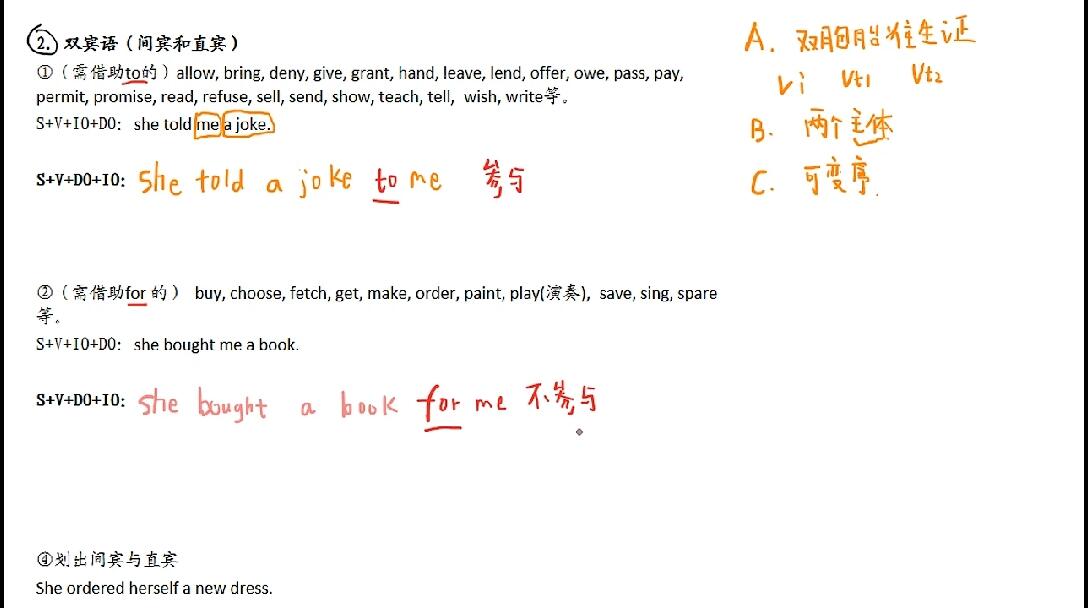 2. 双宾语（间宾和直宾）
①（需借助to的）allow, bring, deny, give, grant, hand, leave, lend, offer, owe, pass, pay,
permit, promise, read, refuse, sell, send, show, teach, tell, wish, write等。
S+V+IO+DO: she told me a joke.
S+V+DO+IO: she told a joke to me 参与
②（需借助for 的） buy, choose, fetch, get, make, order, paint, play(演奏), save, sing, spare
等。
S+V+IO+DO: she bought me a book.
S+V+DO+IO: she bought a book for me 不参与
④划出间宾与直宾
She ordered herself a new dress.
A. 双胞胎准生证
vi vt1 vt2
B. 两个主体
C. 可变序